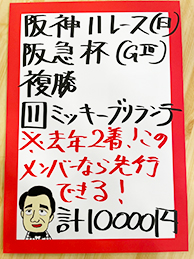 阪神11レース(日)
阪急杯(GⅢ)
複勝
⑪ミッキーブリランテ
※去年2着!この
メンバーなら先行
できる!
計10000円